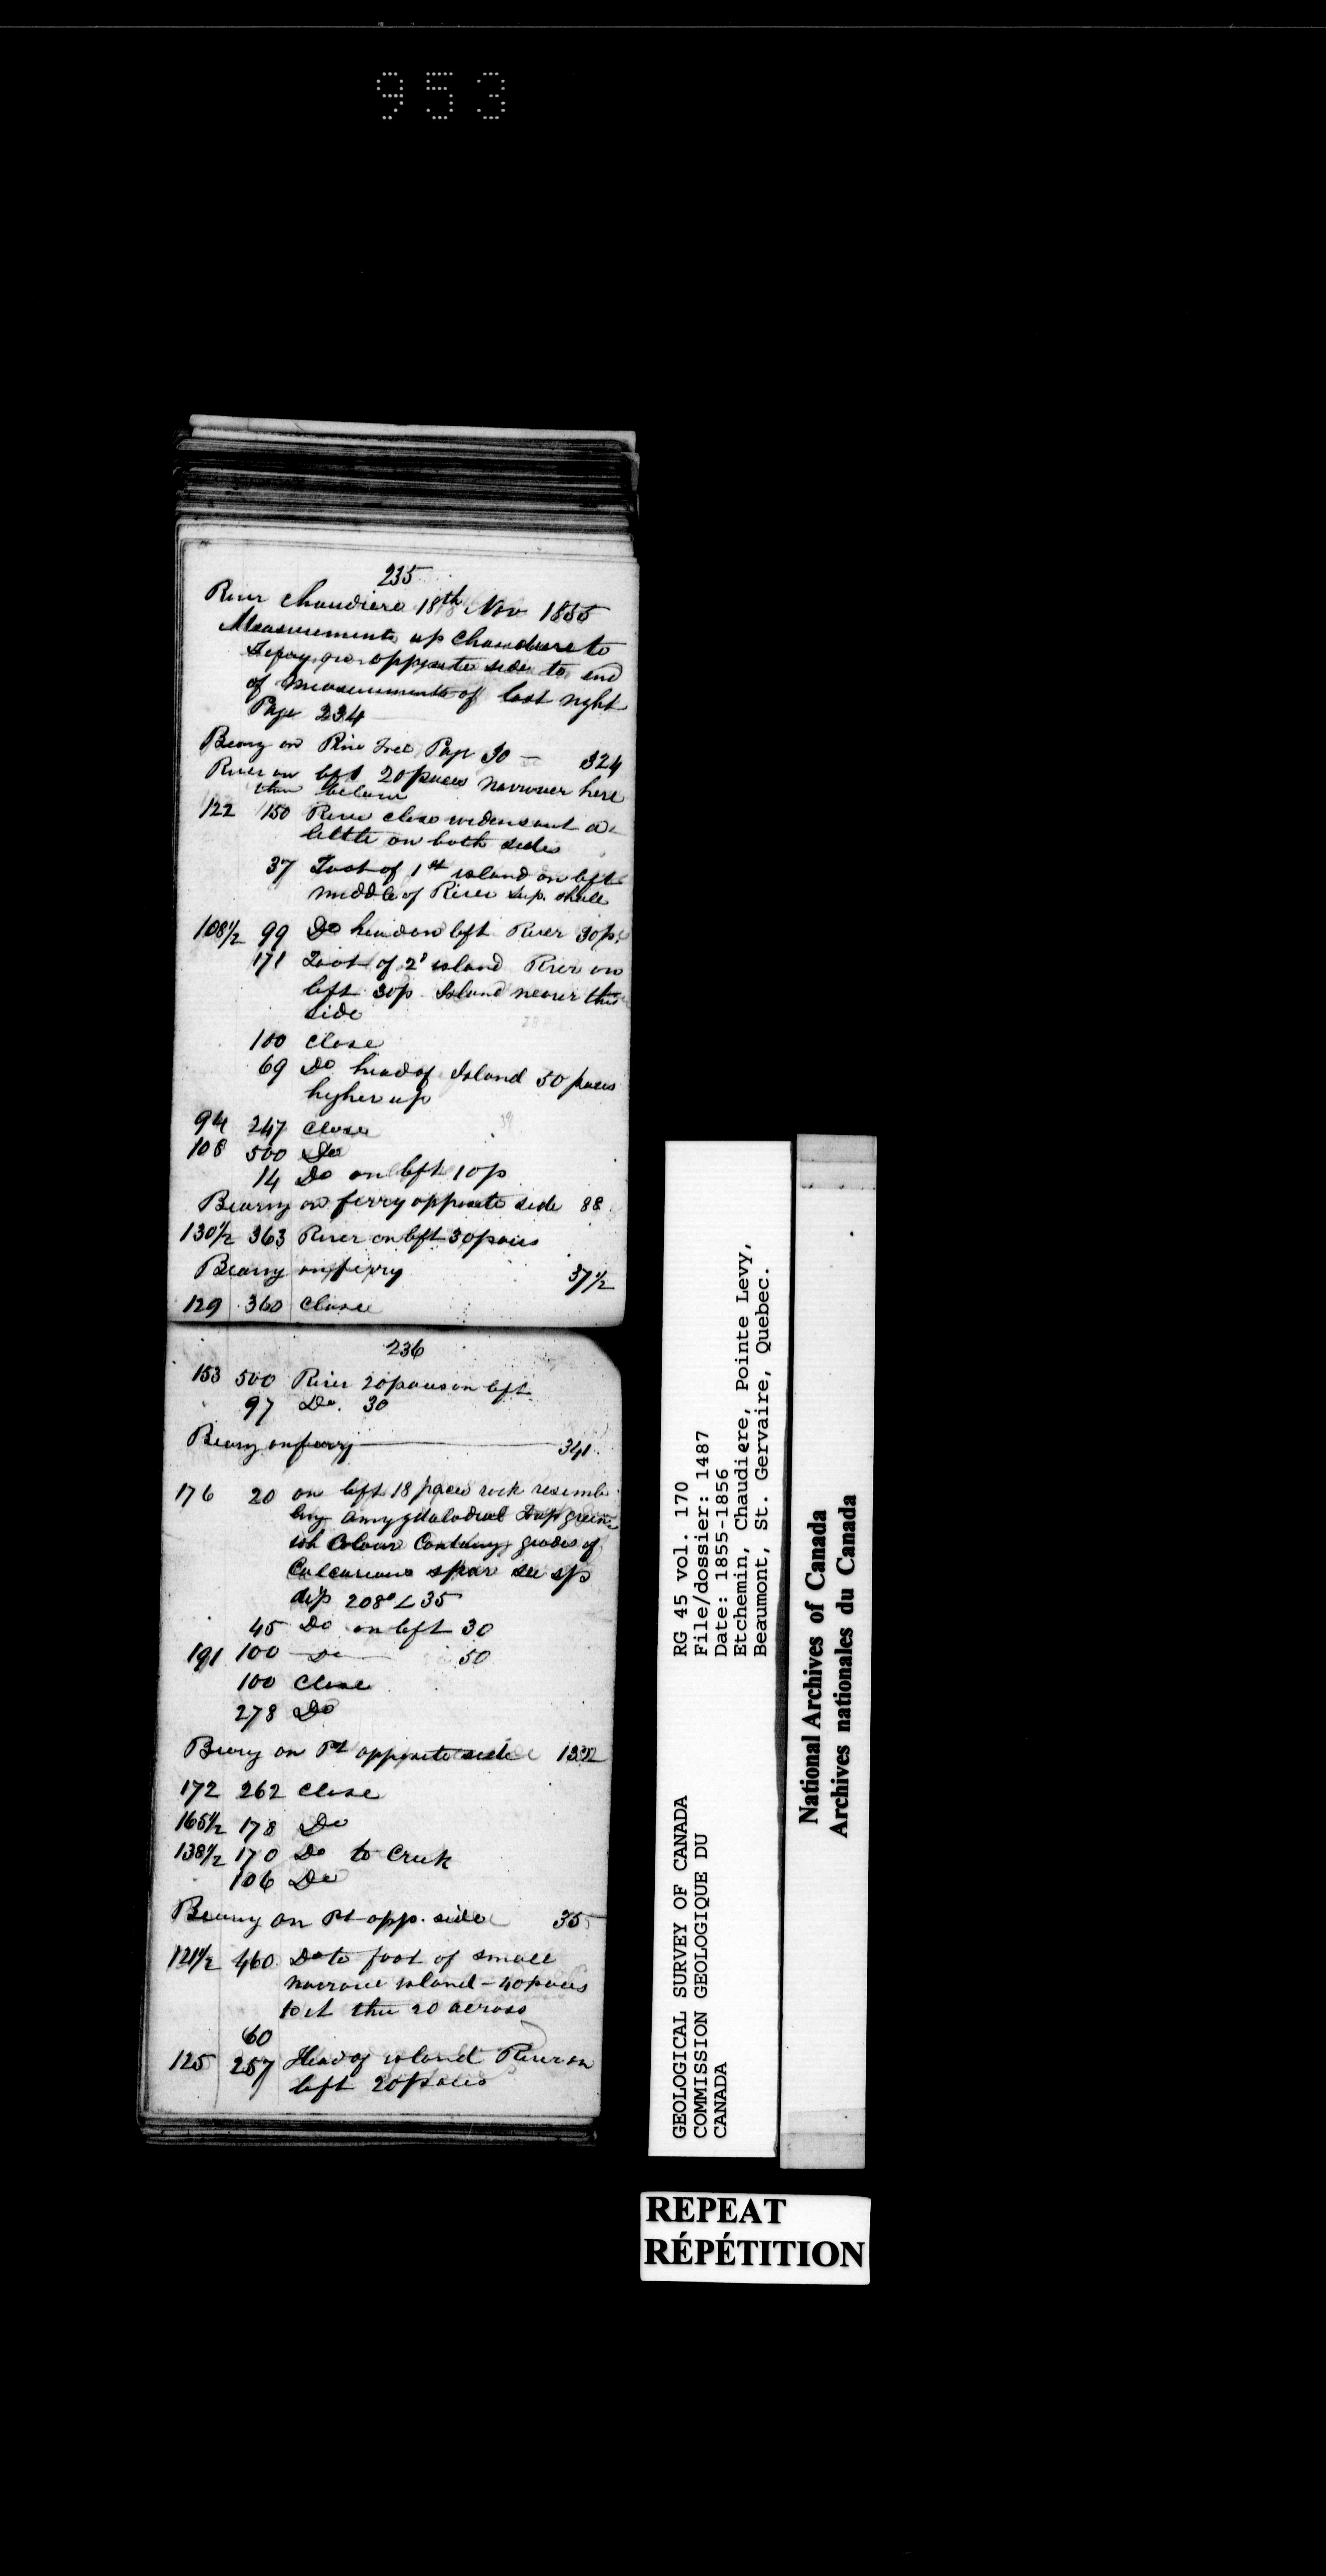 953
235
River Chaudiere 18th Nov 1855
Measurements up Chaudiere to
opposite side to end
of measurements of last night
Page 234
Bearing on Pine Tree Page 30 — 324
River on left 20 paces narrower here
than below
122 150 River close widens out a
little on both sides
37 Foot of 1st island on left
middle of River
108 1/2 99 Do head on left River 30p.
171 Foot of 2d island River on
left 30p Island nearer this
side
100 Close
69 Do head of Island 50 paces
higher up
94 247 Close
108 500 Do
14 Do on left 10p
Bearing on ferry opposite side 88
130 1/2 363 River on left 30 paces
Bearing on ferry 37 1/2
129 360 Close
236
153 500 River 20 paces on left
97 Do. 30
Bearing on ferry — 341
176 20 on left 18 paces rock resemb
ling amygdaloidal Trap green
ish Colour Containing geodes of
Calcareous spar see sp
dip 208° ∠ 35
45 Do on left 30
191 100 Do 50
100 Close
278 Do
Bearing on Pt opposite side 132
172 262 Close
165 1/2 178 Do
138 1/2 170 Do to Creek
106 Do
Bearing on Pt opp. side 35
121 1/2 460 Do to foot of small
narrow island – 40 paces
to it this 20 across
60
125 257 Head of island River on
left 20 paces
GEOLOGICAL SURVEY OF CANADA
COMMISSION GEOLOGIQUE DU
CANADA
RG 45 vol. 170
File/dossier: 1487
Date: 1855-1856
Etchemin, Chaudiere, Pointe Levy,
Beaumont, St. Gervaire, Quebec.
National Archives of Canada
Archives nationales du Canada
REPEAT
RÉPÉTITION